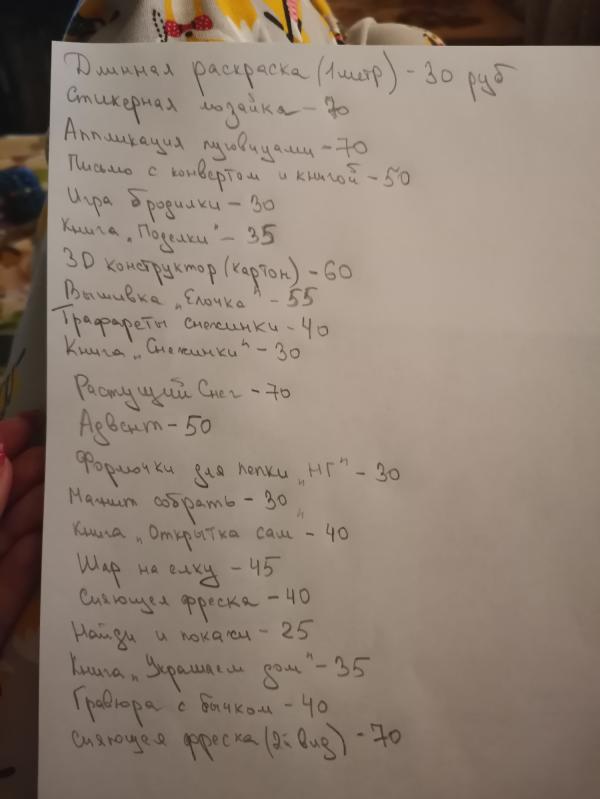 Длинная раскраска (1 метр) - 30 руб
Стикерная мозайка - 70
Аппликация пуговицами - 70
Письмо с конвертом и книгой - 50
Игра бродилки - 30
Книга „Поделки" - 35
3D конструктор (картон) - 60
Вышивка „Елочка" - 55
Трафареты снежинки - 40
Книга „Снежинки" - 30
Растущий Снег - 70
Адвент - 50
Формочки для лепки „НГ" - 30
Магнит собрать - 30
Книга „Открытка сам" - 40
Шар на елку - 45
Сияющая фреска - 40
Найди и покажи - 25
Книга „Украшаем дом" - 35
Гравюра с бычком - 40
сияющая фреска (2й вид) - 70